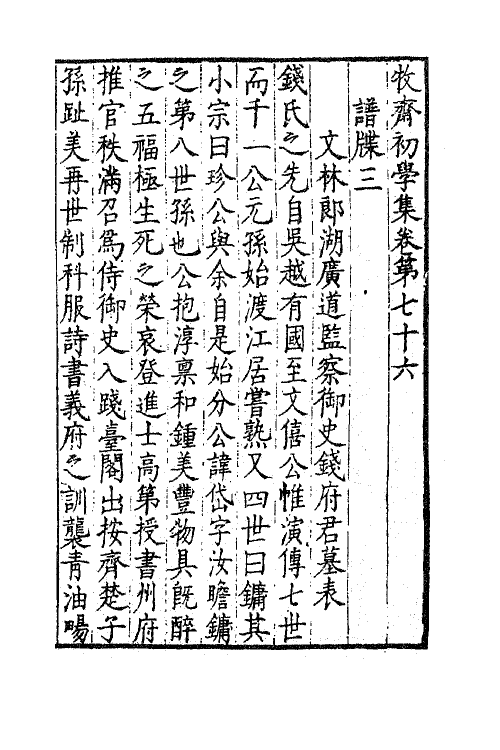 牧齋初學集卷第七十六
譜牒三
文林郎湖廣道監察御史錢府君墓表
錢氏之先自吳越有國至文僖公惟演傳七世
而千一公元孫始渡江居嘗熟又四世曰鏞其
小宗曰珍公與余自是始分公諱岱字汝瞻鏞
之第八世孫也公抱淳稟和鍾美豐物具旣醉
之五福極生死之榮哀登進士高第授書州府
推官秩滿召爲侍御史入踐臺閣出按齊楚子
孫趾美再世制科服詩書義府之訓襲青油畼